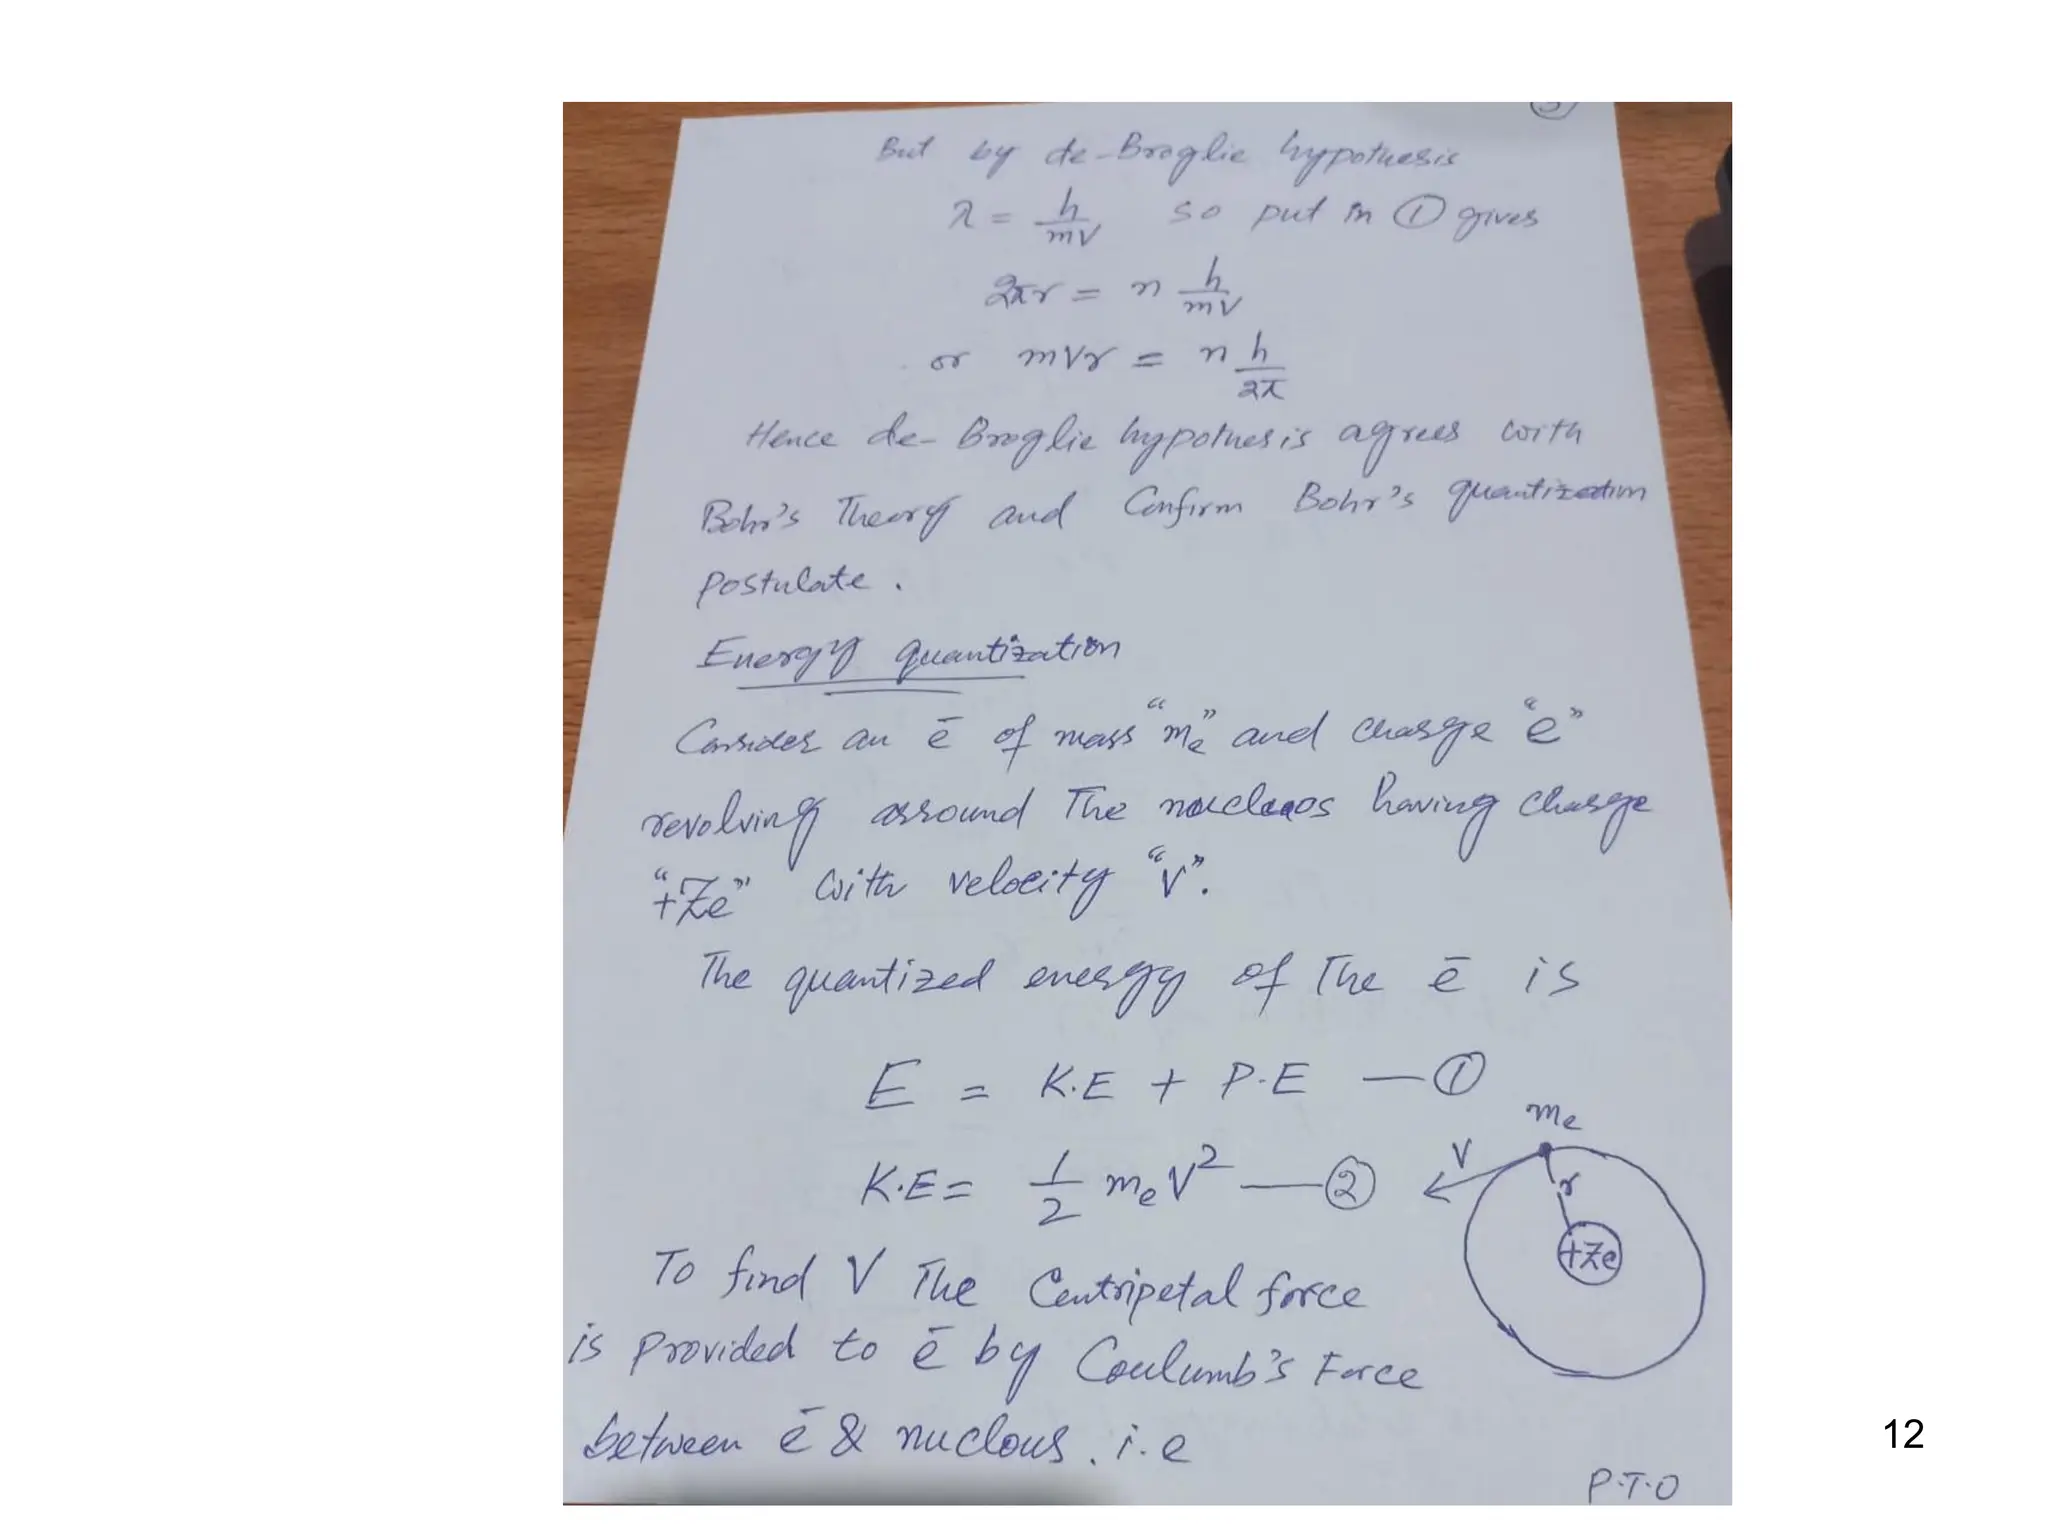 But by de-Broglie hypothesis
λ = h/mV so put in ① gives
2πr = n h/mV
or mVr = n h/2π
Hence de-Broglie hypothesis agrees with
Bohr's Theory and Confirm Bohr's quantization
postulate.
Energy quantization
Consider an ē of mass "me" and charge "e"
revolving arround The nucleos having charge
"+Ze" with velocity "V".
The quantized energy of The ē is
E = K.E + P.E — ①
K.E = 1/2 me V² — ②
me
V
r
+Ze
To find V The Centripetal force
is provided to ē by Coulumb's Force
between ē & nuclous. i.e
P.T.O
12